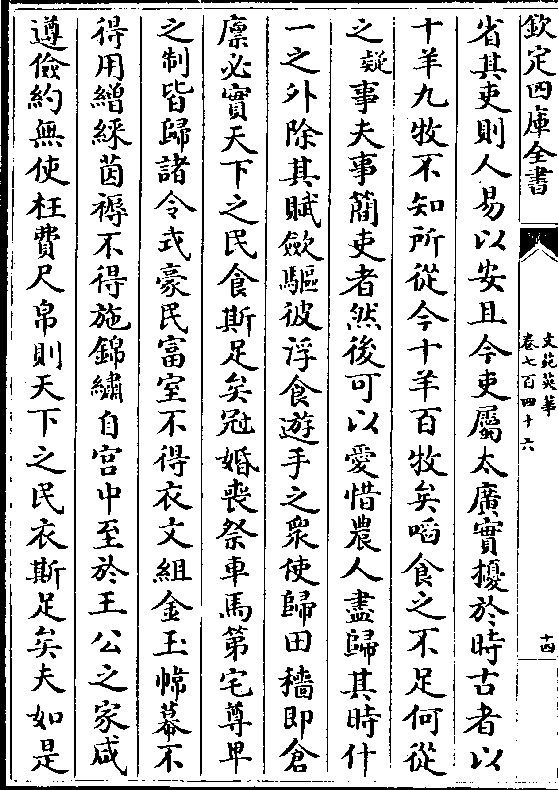 欽定四庫全書
文苑英華
卷七百四十六
十四
省其吏則人易以安且今吏屬太廣實擾於時古者以
十羊九牧不知所從今十羊百牧矣啗食之不足何從
之疑事夫事簡吏者然後可以愛惜農人盡歸其時什
一之外除其賦斂驅彼浮食遊手之衆使歸田穡即倉
廪必實天下之民食斯足矣冠婚喪祭車馬第宅尊卑
之制皆歸諸令式豪民富室不得衣文組金玉幃幕不
得用繒綵茵褥不得施錦繡自宫中至於王公之家咸
遵儉約無使枉費尺帛則天下之民衣斯足矣夫如是